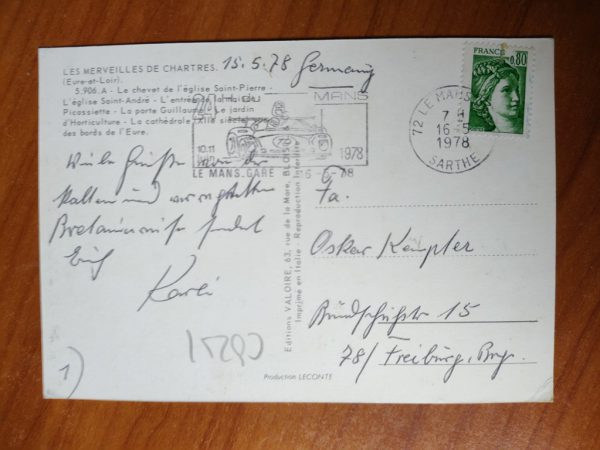 LES MERVEILLES DE CHARTRES. 15.5.78 Germany
(Eure-et-Loir)
5.906.A - Le chevet de l'église Saint-Pierre -
L'église Saint-André - L'entrée de la maison
Picassiette - La porte Guillaume - Le jardin
d'Horticulture - La cathédrale
des bords de l'Eure.
24 MANS
10.11 1978
LE MANS.GARE
FRANCE
0,80
72 LE MANS
7 H
16-5
1978
SARTHE
Viele Grüße von der
kalten und verregneten
Bretagne sendet
Euch
Karli
Fa.
Oskar Kempter
15
78/ Freiburg, Brsg.
Editions VALOIRE, 63, rue de la Mare, BLOIS
Imprimé en Italie - Reproduction Interdite
1)
Production LECONTE